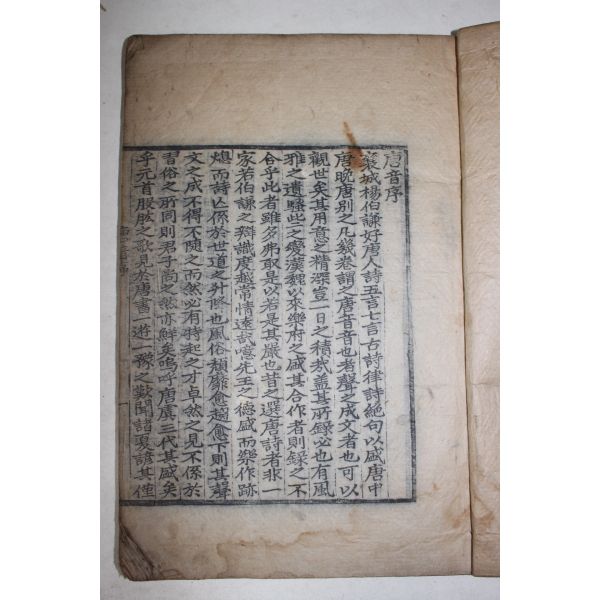 唐音序
襄城楊伯謙好唐人詩五言七言古詩律詩絶句以盛唐中
唐晚唐别之凡幾卷謂之唐音音也者聲之成文者也可以
觀世矣其用意之精深豈一日之積㢤盖其所録必也有風
雅之遺騷些之變漢魏以來樂府之盛其合作者則録之不
合乎此者雖多弗取是以若是其嚴也昔之選唐詩者非一
家若伯謙之辯識度越常情遠㢤噫先王之德盛而樂作跡
熄而詩亾係於世道之升降也風俗頹靡愈趨愈下則其聲
文之成不得不隨之而然必有特起之才卓然之見不係於
習俗之所同則君子尚之然亦鮮矣嗚呼唐虞三代其盛矣
乎元首股肱之歌見於虞書遊一豫之歎聞諸夏諺其僅